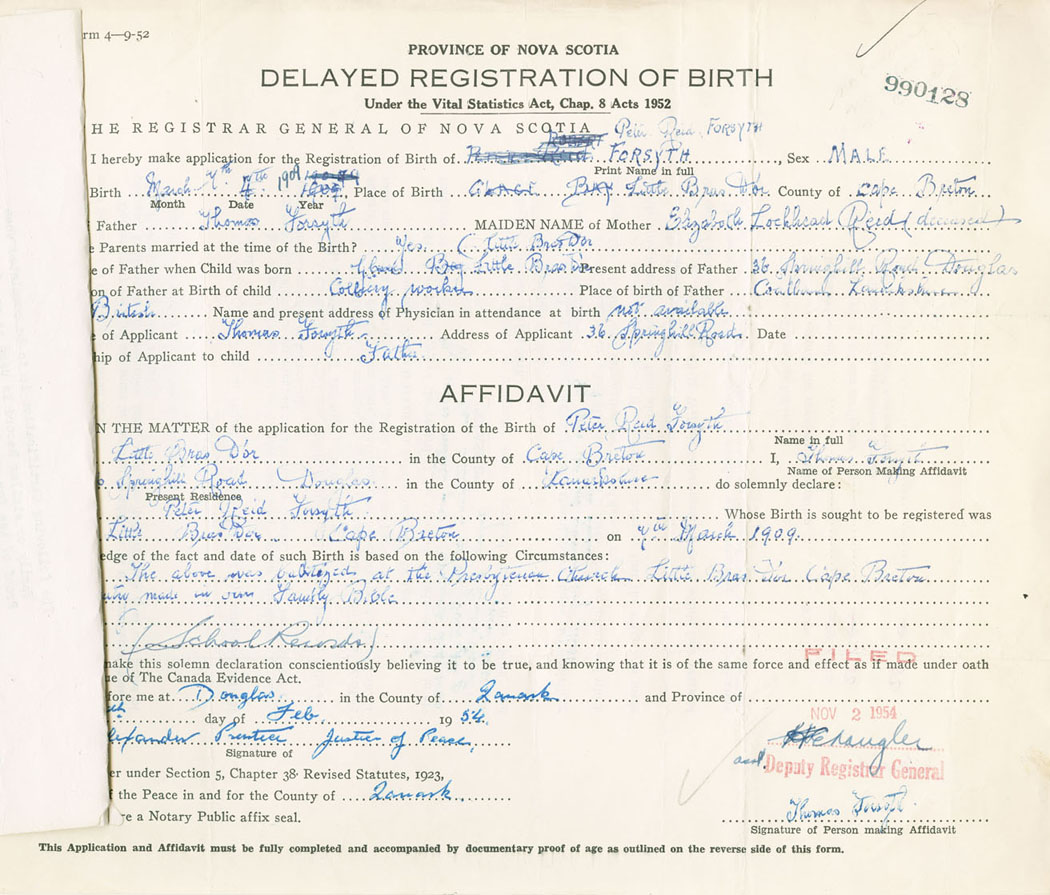 rm 4—9-52
PROVINCE OF NOVA SCOTIA
DELAYED REGISTRATION OF BIRTH
990128
Under the Vital Statistics Act, Chap. 8 Acts 1952
HE REGISTRAR GENERAL OF NOVA SCOTIA Peter Reid FORSYTH
I hereby make application for the Registration of Birth of FORSYTH, Sex MALE
Print Name in full
Birth March 7th 1909 Place of Birth Glace Bay Little Bras D'or County of Cape Breton
Month Date Year
Father Thomas Forsyth MAIDEN NAME of Mother Elizabeth Lockhead Reid (deceased)
e Parents married at the time of the Birth? Yes. (Little Bras D'or
e of Father when Child was born Glace Bay Little Bras D'or Present address of Father 36 Springhill Road Douglas
on of Father at Birth of child Colliery worker Place of birth of Father Lanarkshire
British Name and present address of Physician in attendance at birth not available
e of Applicant Thomas Forsyth Address of Applicant 36 Springhill Road Date
hip of Applicant to child Father
AFFIDAVIT
N THE MATTER of the application for the Registration of the Birth of Peter Reid Forsyth
Name in full
Little Bras D'or in the County of Cape Breton I, Thomas Forsyth
Name of Person Making Affidavit
Springhill Road Douglas in the County of Lanarkshire do solemnly declare:
Present Residence
Peter Reid Forsyth Whose Birth is sought to be registered was
Little Bras Dor Cape Breton on 7th March 1909.
edge of the fact and date of such Birth is based on the following Circumstances:
The above was baptized at the Presbyterian Church Little Bras D'or Cape Breton
made in our Family Bible
(School Records)
FILED
make this solemn declaration conscientiously believing it to be true, and knowing that it is of the same force and effect as if made under oath
e of The Canada Evidence Act.
fore me at Douglas in the County of Lanark and Province of
th day of Feb. 1954.
NOV 2 1954
lexander Prentice Justice of Peace
Signature of
Deputy Registrar General
er under Section 5, Chapter 38 Revised Statutes, 1923,
f the Peace in and for the County of Lanark
Thomas Forsyth
re a Notary Public affix seal.
Signature of Person making Affidavit
This Application and Affidavit must be fully completed and accompanied by documentary proof of age as outlined on the reverse side of this form.